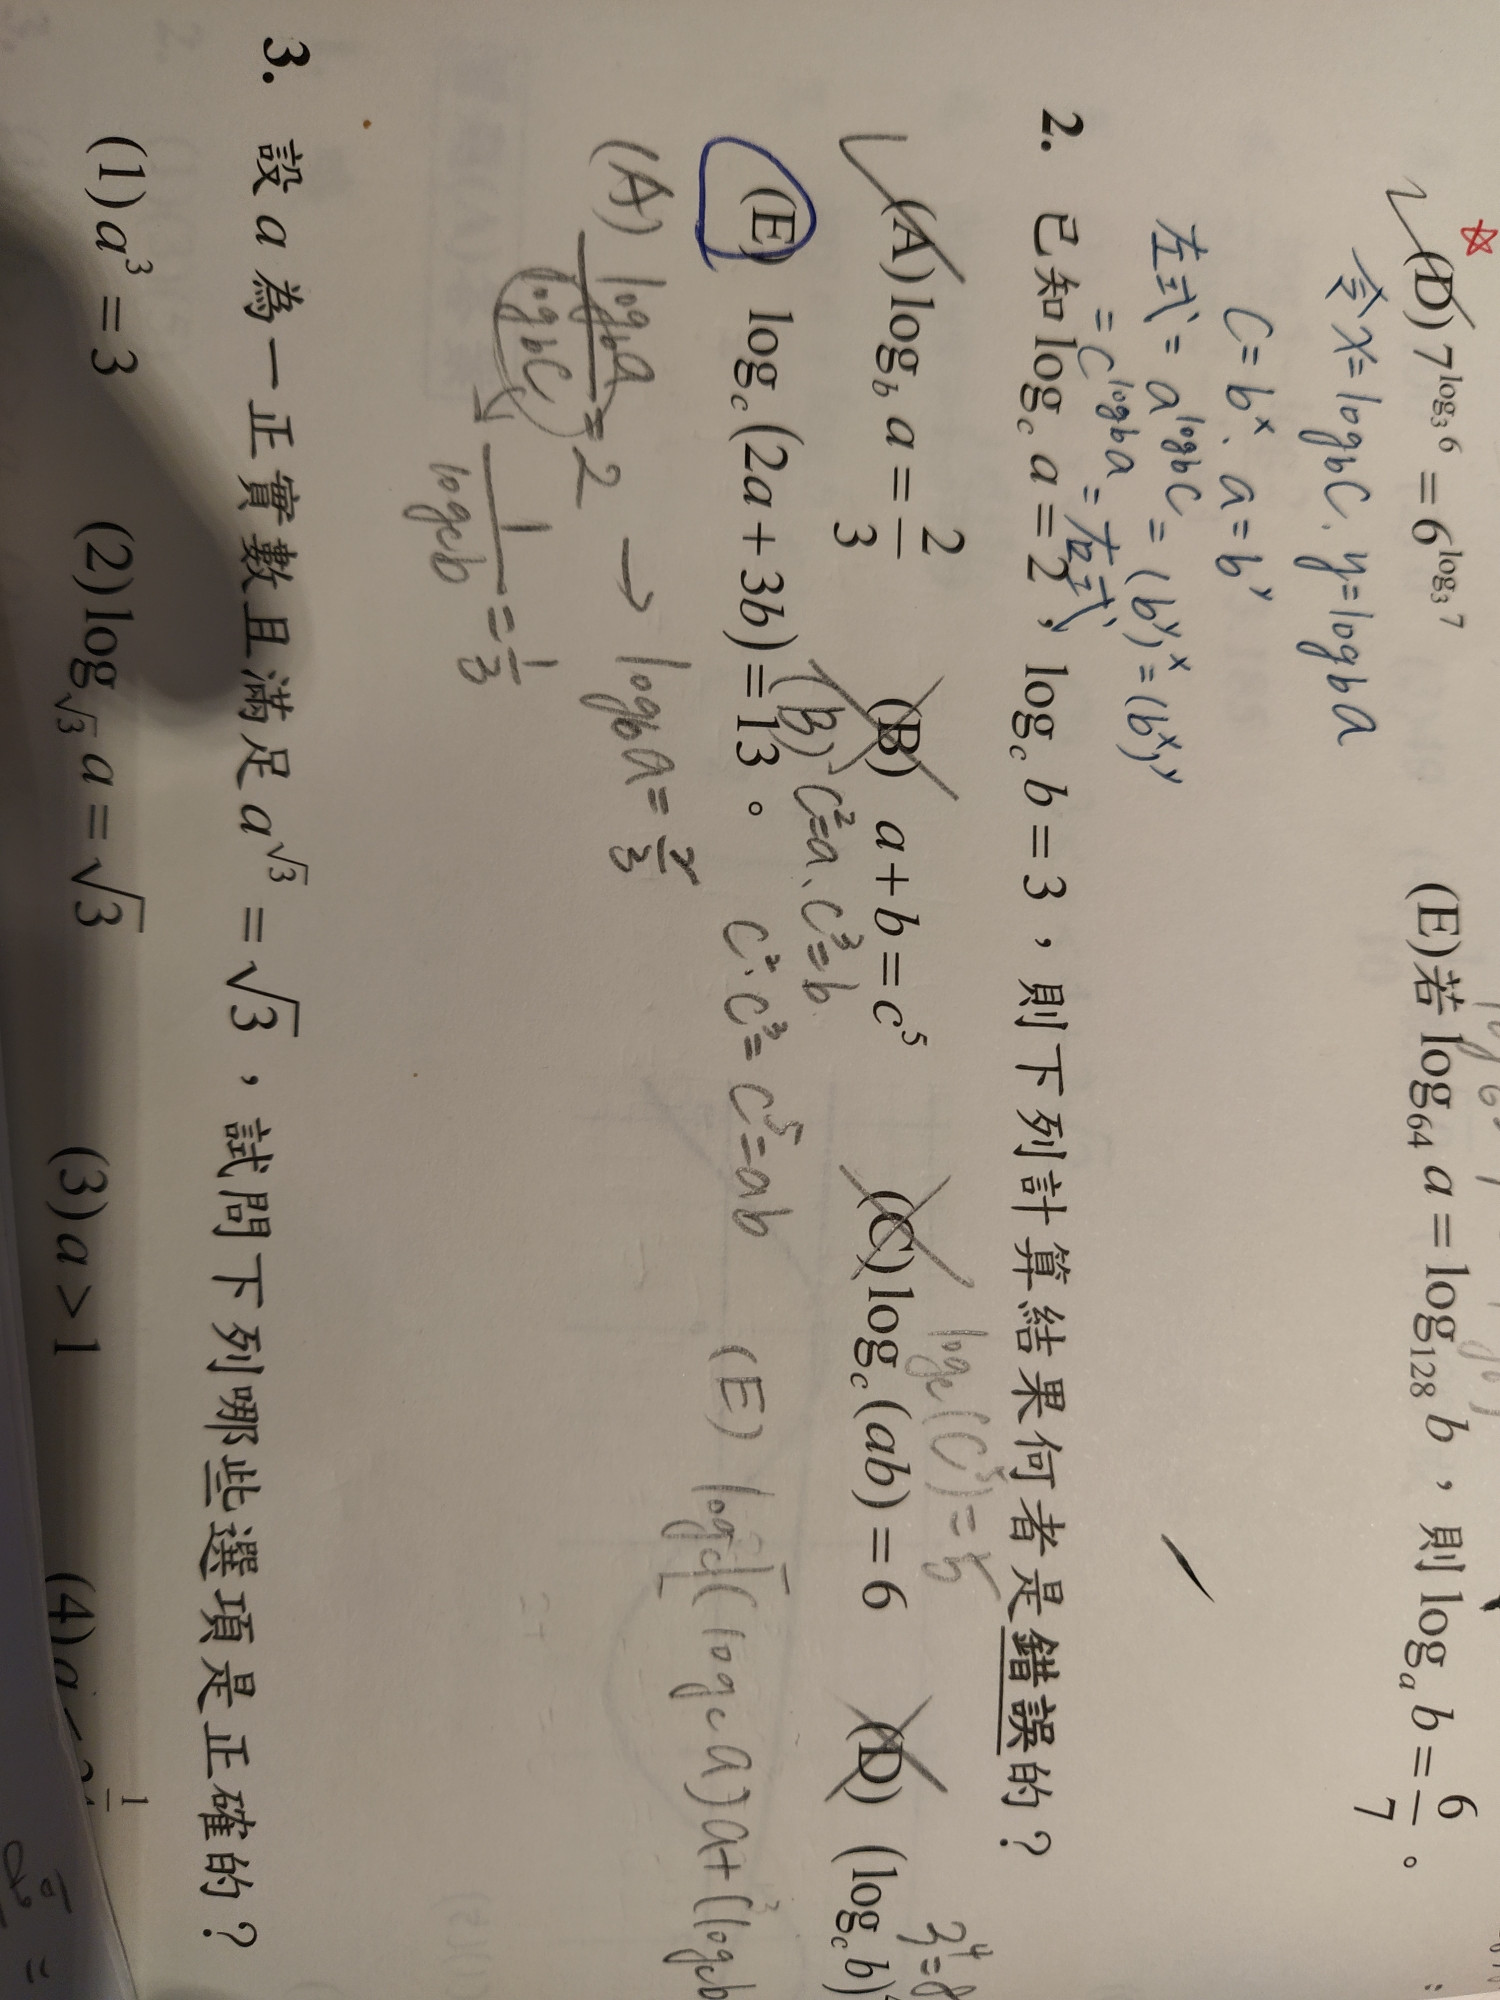 (D) 7^{log₃6} = 6^{log₃7} (E)若 log₆₄ a = log₁₂₈ b，則 logₐ b = 6/7。
☆ 令 x = log_b C、y = log_b a
C = b^x、a = b^y
左式 = a^{log_b C} = (b^y)^x = (b^x)^y
= C^{log_b a} = 右式
2. 已知 log_c a = 2，log_c b = 3，則下列計算結果何者是錯誤的？
log_c(C^5) = 5
3^4 = 8
(A) log_b a = 2/3 (B) a + b = c⁵ (C) log_c (ab) = 6 (D) (log_c b)
(E) log_c (2a + 3b) = 13。
(B) C² = a、C³ = b
C²·C³ = C⁵ = ab
(A) log_b a / log_b C = 2 → log_b a = 2/3
1 / log_c b = 1/3
(E)
3. 設 a 為一正實數且滿足 a^{√3} = √3，試問下列哪些選項是正確的？
(1) a³ = 3 (2) log_{√3} a = √3 (3) a > 1 (4)